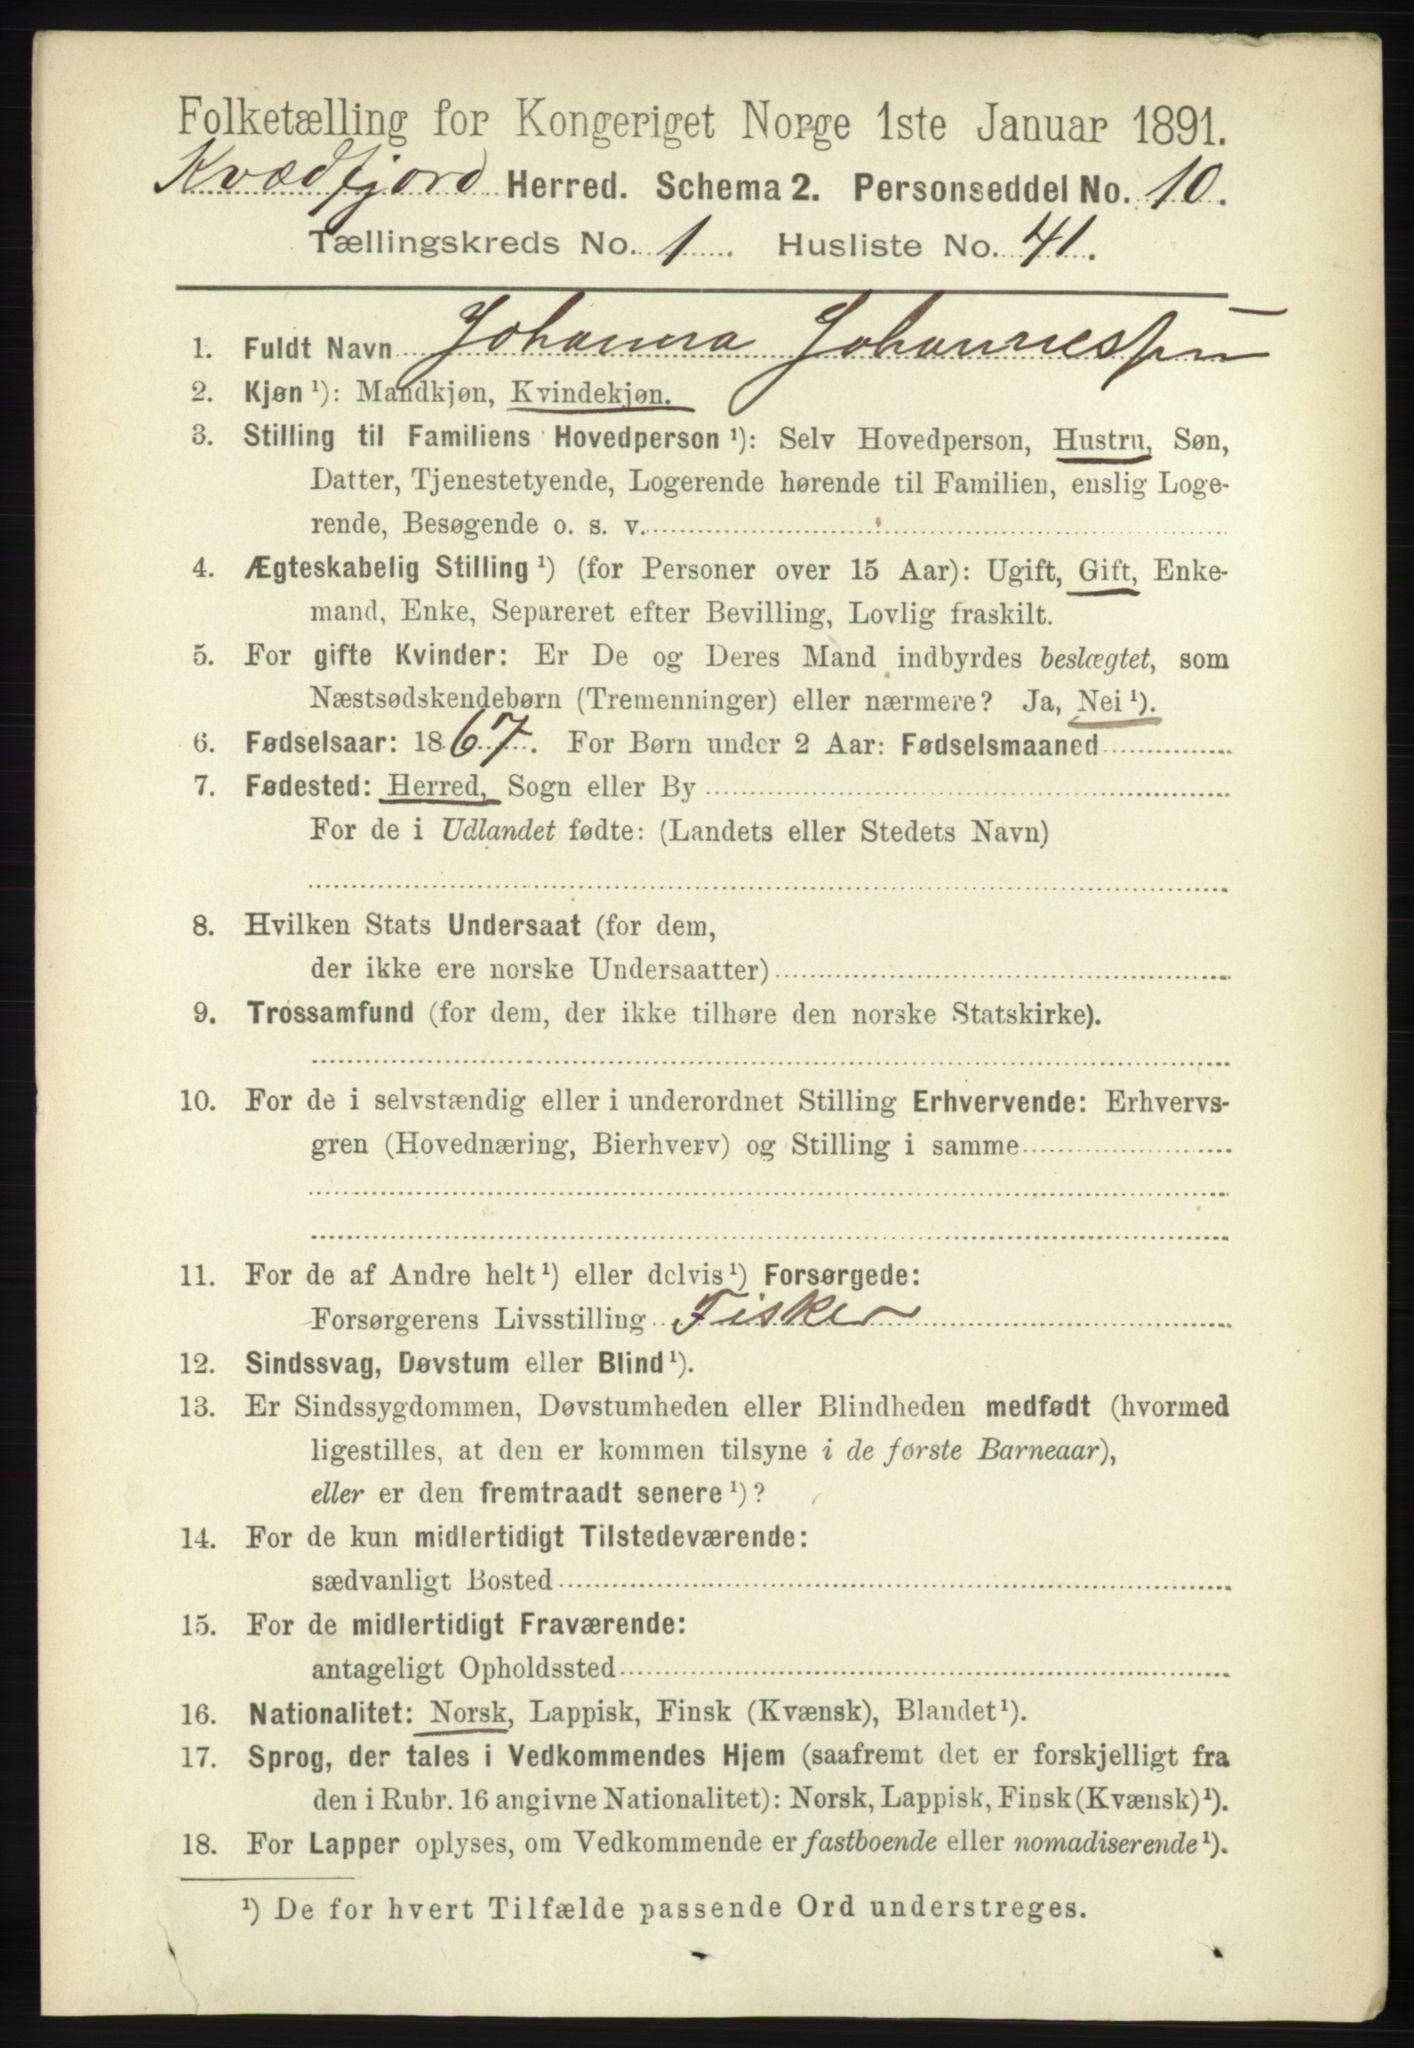 Folketælling for Kongeriget Norge 1ste Januar 1891.
Kvædfjord Herred. Schema 2. Personseddel No. 10.
Tællingskreds No. 1. Husliste No. 41.
1. Fuldt Navn Johanna Johannessen
2. Kjøn ¹): Mandkjøn, Kvindekjøn.
3. Stilling til Familiens Hovedperson ¹): Selv Hovedperson, Hustru, Søn,
Datter, Tjenestetyende, Logerende hørende til Familien, enslig Loge-
rende, Besøgende o. s. v.
4. Ægteskabelig Stilling ¹) (for Personer over 15 Aar): Ugift, Gift, Enke-
mand, Enke, Separeret efter Bevilling, Lovlig fraskilt.
5. For gifte Kvinder: Er De og Deres Mand indbyrdes beslægtet, som
Næstsødskendebørn (Tremenninger) eller nærmere? Ja, Nei ¹).
6. Fødselsaar: 1867. For Børn under 2 Aar: Fødselsmaaned
7. Fødested: Herred, Sogn eller By
For de i Udlandet fødte: (Landets eller Stedets Navn)
8. Hvilken Stats Undersaat (for dem,
der ikke ere norske Undersaatter)
9. Trossamfund (for dem, der ikke tilhøre den norske Statskirke).
10. For de i selvstændig eller i underordnet Stilling Erhvervende: Erhvervs-
gren (Hovednæring, Bierhverv) og Stilling i samme
11. For de af Andre helt ¹) eller delvis ¹) Forsørgede:
Forsørgerens Livsstilling Fisker
12. Sindssvag, Døvstum eller Blind ¹).
13. Er Sindssygdommen, Døvstumheden eller Blindheden medfødt (hvormed
ligestilles, at den er kommen tilsyne i de første Barneaar),
eller er den fremtraadt senere ¹)?
14. For de kun midlertidigt Tilstedeværende:
sædvanligt Bosted
15. For de midlertidigt Fraværende:
antageligt Opholdssted
16. Nationalitet: Norsk, Lappisk, Finsk (Kvænsk), Blandet ¹).
17. Sprog, der tales i Vedkommendes Hjem (saafremt det er forskjelligt fra
den i Rubr. 16 angivne Nationalitet): Norsk, Lappisk, Finsk (Kvænsk) ¹).
18. For Lapper oplyses, om Vedkommende er fastboende eller nomadiserende ¹).
¹) De for hvert Tilfælde passende Ord understreges.